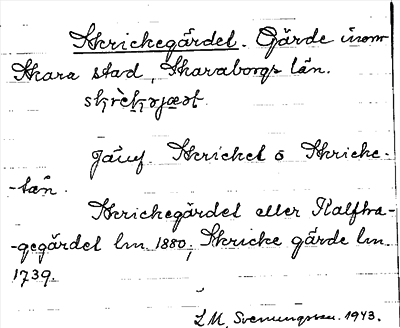 Skrickegärdet. Gärde inom
Skara stad, Skaraborgs län.
Jämf. Skricket o Skricke-
-tån.
Skrickegärdet eller Kalfha-
-gegärdet lm 1880; Skricke gärde lm
1739.
L M. Svenungsson. 1943.